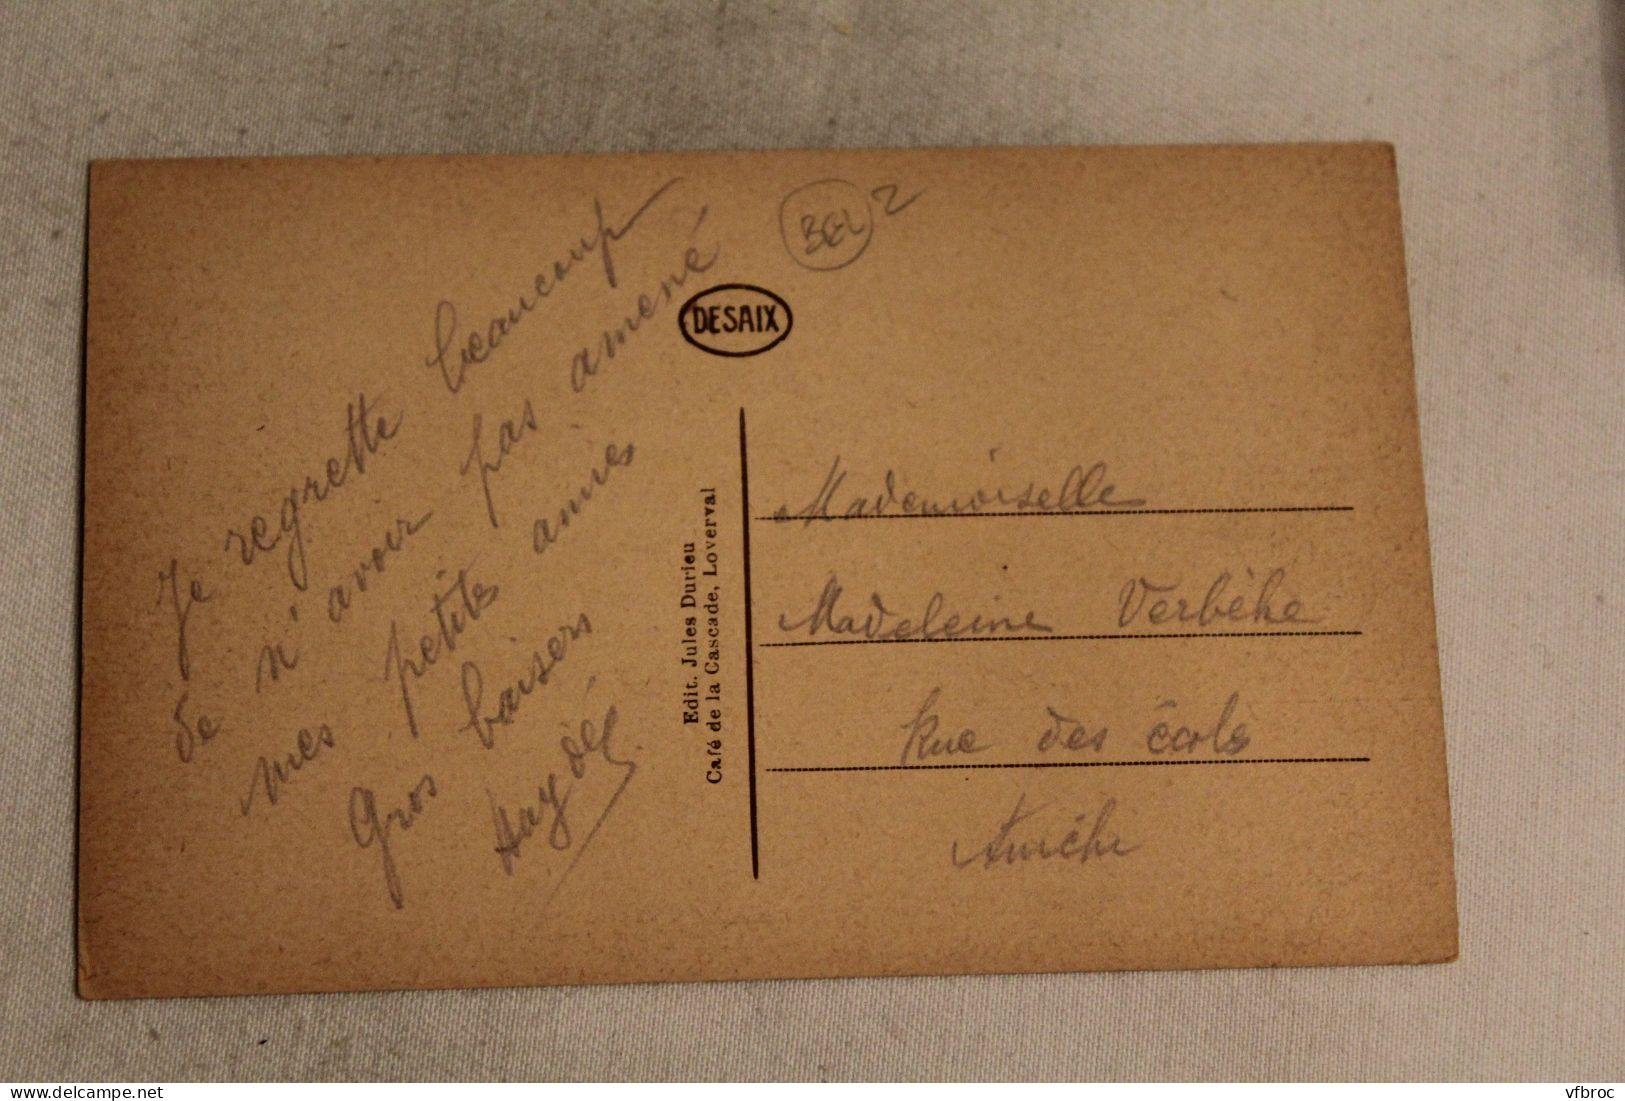 Je regrette beaucoup
de n'avoir pas amené
mes petites amies
Gros baisers
Haydée
BEL 2
DESAIX
Edit. Jules Durieu
Café de la Cascade, Loverval
Mademoiselle
Madeleine Verbèke
Rue des écols
Aniche
www.delcampe.net
vfbroc